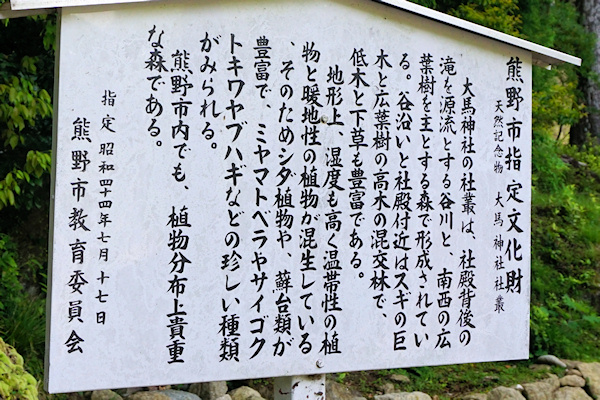 熊野市指定文化財
天然記念物 大馬神社社叢
大馬神社の社叢は、社殿背後の
滝を源流とする谷川と、南西の広
葉樹を主とする森で形成されてい
る。谷沿いと社殿付近はスギの巨
木と広葉樹の高木の混交林で、
低木と下草も豊富である。
地形上、湿度も高く温帯性の植
物と暖地性の植物が混生している
、そのためシダ植物や、蘚台類が
豊富で、ミヤマトベラやサイゴク
トキワヤブハギなどの珍しい種類
がみられる。
熊野市内でも、植物分布上貴重
な森である。
指定 昭和四十四年七月十七日
熊野市教育委員会